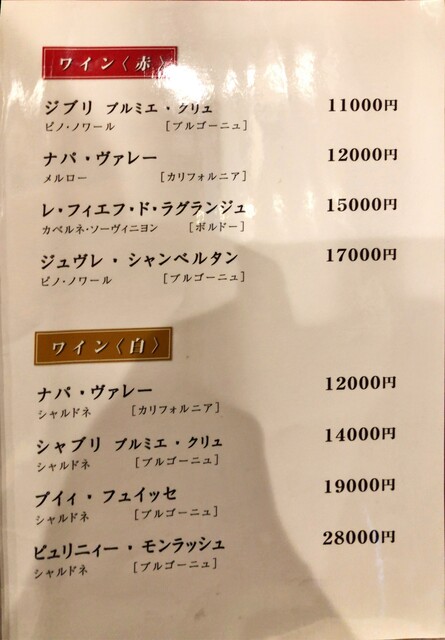 ワイン〈赤〉
ジブリ プルミエ・クリュ 11000円
ピノ・ノワール [ブルゴーニュ]
ナパ・ヴァレー 12000円
メルロー [カリフォルニア]
レ・フィエフ・ド・ラグランジュ 15000円
カベルネ・ソーヴィニヨン [ボルドー]
ジュヴレ・シャンベルタン 17000円
ピノ・ノワール [ブルゴーニュ]
ワイン〈白〉
ナパ・ヴァレー 12000円
シャルドネ [カリフォルニア]
シャブリ プルミエ・クリュ 14000円
シャルドネ [ブルゴーニュ]
プイィ・フュイッセ 19000円
シャルドネ [ブルゴーニュ]
ピュリニィー・モンラッシュ 28000円
シャルドネ [ブルゴーニュ]